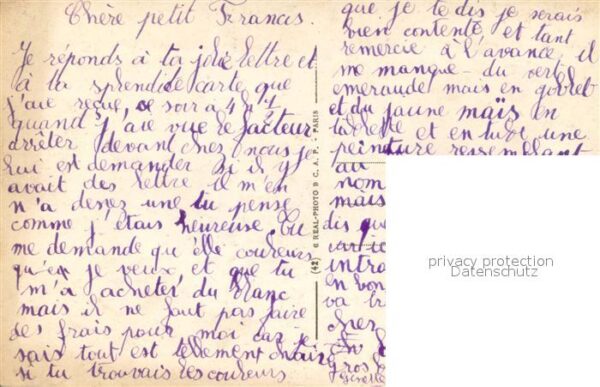 Chère petit Francis.
Je réponds à ta jolie lettre et
à la splendide carte que
j'aie reçue, ce soir à 4 h 1/2
quand j'aie vue le facteur
arrêter devant chez nous je
lui est demander si il y
avait des lettre il m'en
n'a donez une tu pense
comme j'étais heureuse. Tu
me demande qu'elle couleurs
qu'en je veux, et que tu
m'a acheter du blanc
mais il ne faut pas faire
des frais pour moi car je
sais tout est tellement chaire
si tu trouvais les couleurs
que je te dis je serais
bien contente et tant
remercie à l'avance, il
me manque du vert
émeraude mais en godet
et du jaune maïs en
tablette et en tube une
peinture ressemblant
au
nom
mais
dis que
intro
en bon
va
chez
en
gros
(42) © REAL-PHOTO B C. A. P. - PARIS
privacy protection
Datenschutz